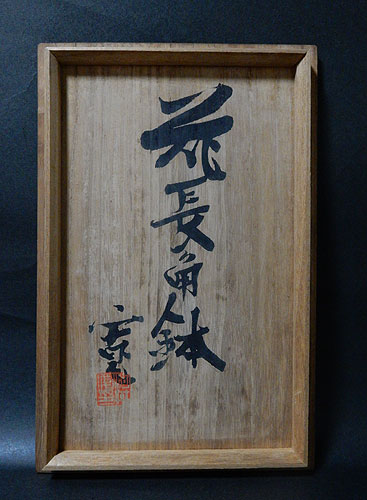 花長角鉢